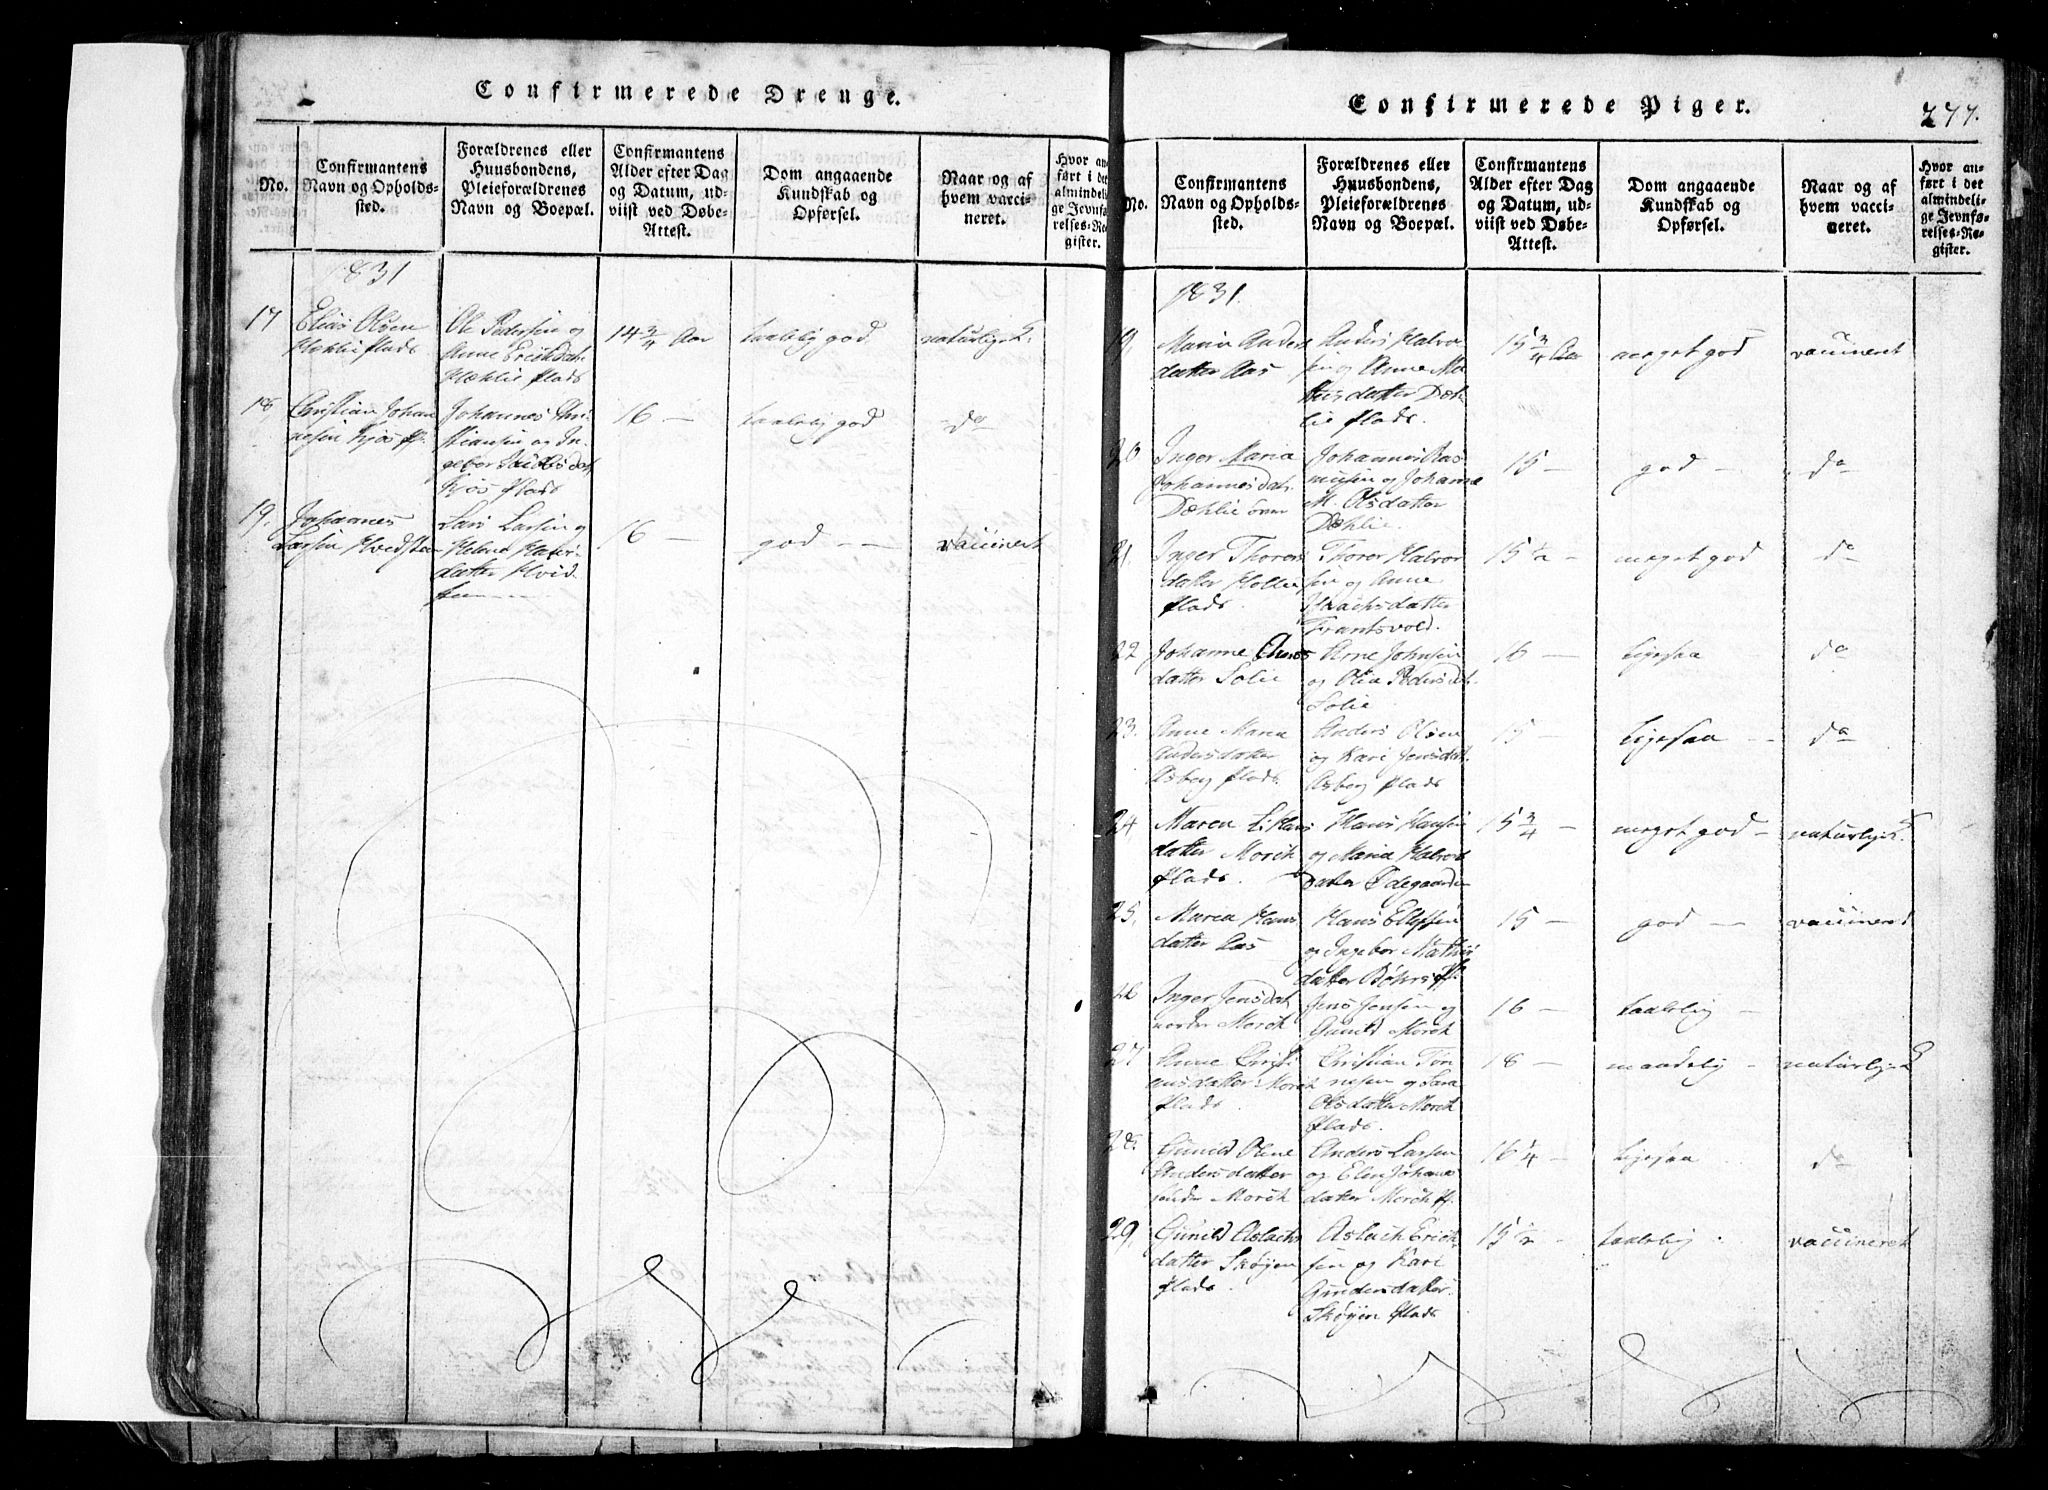 Confirmerede Drenge.
No.
Confirmantens
Navn og Opholds-
sted.
Forældrenes eller
Huusbondens,
Pleieforældrenes
Navn og Boepæl.
Confirmantens
Alder efter Dag
og Datum, ud-
viist ved Døbe-
Attest.
Dom angaaende
Kundskab og
Opførsel.
Naar og af
hvem vacci-
neret.
Hvor an-
ført i det
almindeli-
ge Jevnfø-
relses-Re-
gister.
1831
17
Elias Olsen
Hæhlie Plads
Ole Pedersen og
Anne Erichsdat.
Hæhlie Plads
14 3/4 Aar
taalelig god
naturlige K.
18
Christian Johan
nesen Kjos Pl.
Johannes Chri-
stiansen og In-
gebor Jacobsdat.
Kjos Plads
16 —
taalelig god
do
19.
Johannes
Larsen Hvidsten
Lars Larsen og
Helene
datter Hvid
sten
16 —
god —
vaccineret
Confirmerede Piger.
277.
No.
Confirmantens
Navn og Opholds-
sted.
Forældrenes eller
Huusbondens,
Pleieforældrenes
Navn og Boepæl.
Confirmantens
Alder efter Dag
og Datum, ud-
viist ved Døbe-
Attest.
Dom angaaende
Kundskab og
Opførsel.
Naar og af
hvem vacci-
neret.
Hvor an-
ført i det
almindeli-
ge Jevnfø-
relses-Re-
gister.
1831.
19.
Maria Anders
datter Aas
Anders Halvor
sen og Anne Ma
thisdatter Dæh
lie Plads.
15 3/4 Aar
meget god
vaccineret
20
Inger Maria
Johannesdat.
Dæhlie øvre
Johannes Ras
musen og Johanne
M. Olsdatter
Dæhlie.
15 —
god —
do
21.
Inger Thorers
datter Hollie
Plads.
Thorer Halvor
sen og Anne
Isaachsdatter
Frantsvold.
15 1/2 -
meget god
do
22
Johanne Arnes
datter Solie
Arne Johnsen
og Olia Pedersdat.
Solie
16 —
ligesaa
do
23.
Anne Maria
Andersdatter
Asberg Plads.
Anders Olsen
og Kari Jensdat.
Asberg Plads
15 —
ligesaa —
do
24
Maren L. Hans
datter Morch
Plads.
Hans Hansen
og Maria Halvors
datter Ødegaarden
15 3/4 —
meget god —
naturlige K.
25.
Maren Hans
datter Aas
Hans Ellefsen
og Ingebor Mathis
datter Böhrs Pl.
15 —
god —
vaccineret
26
Inger Jensdat.
nordre Morch
Jens Jensen og
Gunild Morch
16 —
taalelig —
27
Anne Christi
ansdatter Morch
Plads.
Christian Tön
nesen og Sara
Olsdatter Morch
Plads.
18 —
maadelig -
naturlige K
28.
Gunild Oline
Andersdatter
søndre Morch
Anders Larsen
og Elen Johannes
datter Morch Pl.
16 1/4 —
ligesaa
do
29.
Gunild Aslachs
datter Skøyen
Plads.
Aslach Erich
sen og Kari
Gundersdatter
Skøyen Plads
15 1/2 -
taalelig
vaccineret